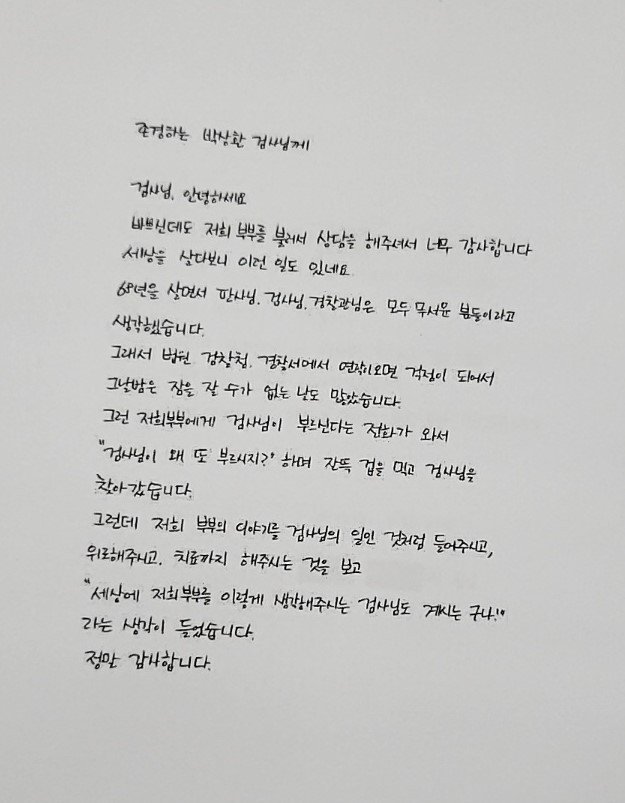 존경하는 박상환 검사님께
검사님, 안녕하세요
바쁘신데도 저희 부부를 불러서 상담을 해주셔서 너무 감사합니다
세상을 살다보니 이런 일도 있네요.
68년을 살면서 판사님, 검사님, 경찰관님은 모두 무서운 분들이라고
생각했습니다.
그래서 법원, 검찰청, 경찰서에서 연락이오면 걱정이 되어서
그날밤은 잠을 잘 수가 없는 날도 많았습니다.
그런 저희부부에게 검사님이 부르신다는 전화가 와서
"검사님이 왜 또 부르시지?" 하며 잔뜩 겁을 먹고 검사님을
찾아갔습니다.
그런데 저희 부부의 이야기를 검사님의 일인 것처럼 들어주시고,
위로해주시고, 치료까지 해주시는 것을 보고
"세상에 저희부부를 이렇게 생각해주시는 검사님도 계시는 구나!"
라는 생각이 들었습니다.
정말 감사합니다.